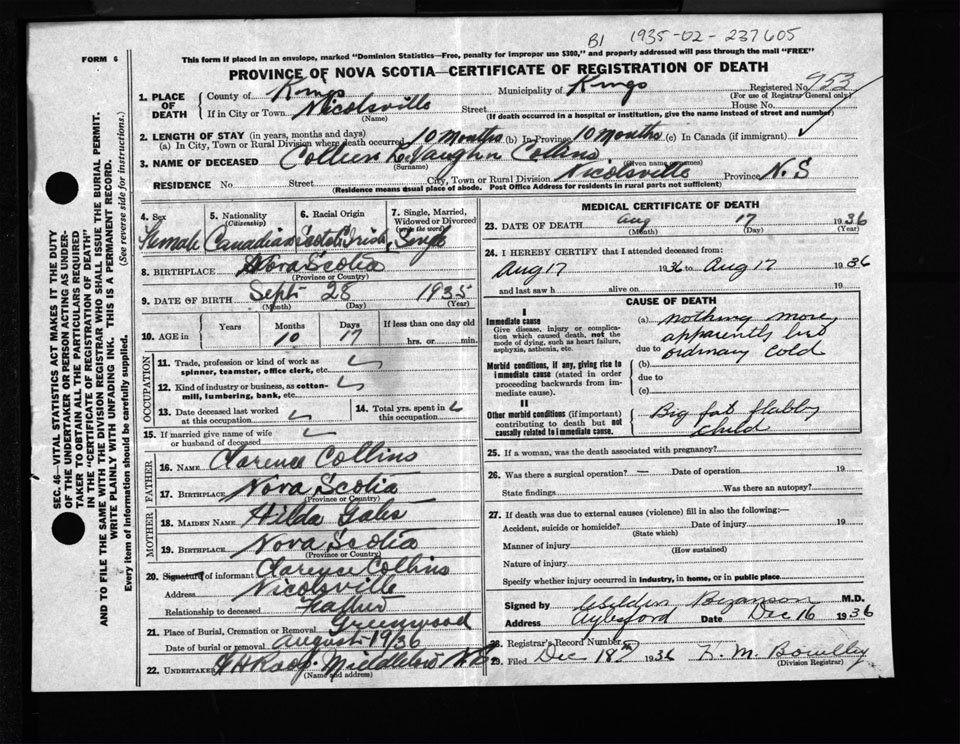 B1 1935-02-237605
FORM 6
This form if placed in an envelope, marked "Dominion Statistics—Free, penalty for improper use $300," and properly addressed will pass through the mail "FREE"
PROVINCE OF NOVA SCOTIA—CERTIFICATE OF REGISTRATION OF DEATH
SEC. 46—VITAL STATISTICS ACT MAKES IT THE DUTY
OF THE UNDERTAKER OR PERSON ACTING AS UNDER-
TAKER TO OBTAIN ALL THE PARTICULARS REQUIRED
IN THE "CERTIFICATE OF REGISTRATION OF DEATH"
AND TO FILE THE SAME WITH THE DIVISION REGISTRAR WHO SHALL ISSUE THE BURIAL PERMIT.
WRITE PLAINLY WITH UNFADING INK. THIS IS A PERMANENT RECORD.
Every item of information should be carefully supplied. (See reverse side for instructions.)
1. PLACE OF DEATH
County of Kings Municipality of Kings Registered No. 953
(For use of Registrar General only)
If in City or Town Nicolsville Street House No.
(Name) (If death occurred in a hospital or institution, give the name instead of street and number)
2. LENGTH OF STAY (in years, months and days)
(a) In City, Town or Rural Division where death occurred 10 Months (b) In Province 10 Months (c) In Canada (if immigrant)
3. NAME OF DECEASED Vaughn Collins
(Surname) (Given name or names)
RESIDENCE No. Street City, Town or Rural Division Nicolsville Province N.S
(Residence means usual place of abode. Post Office Address for residents in rural parts not sufficient)
4. Sex 5. Nationality (Citizenship) 6. Racial Origin 7. Single, Married, Widowed or Divorced (write the word)
Female Canadian Scotch Irish Single
8. BIRTHPLACE Nova Scotia
(Province or Country)
9. DATE OF BIRTH Sept 28 1935
(Month) (Day) (Year)
10. AGE in Years Months Days If less than one day old
10 17 hrs. or min.
OCCUPATION
11. Trade, profession or kind of work as
spinner, teamster, office clerk, etc.
12. Kind of industry or business, as cotton-
mill, lumbering, bank, etc.
13. Date deceased last worked
at this occupation
14. Total yrs. spent in
this occupation
15. If married give name of wife
or husband of deceased
FATHER
16. NAME Clarence Collins
17. BIRTHPLACE Nova Scotia
(Province or Country)
MOTHER
18. MAIDEN NAME Hilda
19. BIRTHPLACE Nova Scotia
(Province or Country)
20. Signature of informant Clarence Collins
Address Nicolsville
Relationship to deceased Father
21. Place of Burial, Cremation or Removal Greenwood
Date of burial or removal August 1936
22. UNDERTAKER Middleton N.S
(Name and address)
MEDICAL CERTIFICATE OF DEATH
23. DATE OF DEATH Aug 17 1936
(Month) (Day) (Year)
24. I HEREBY CERTIFY that I attended deceased from:
Aug 17 1936 to Aug 17 1936
and last saw h alive on 19
CAUSE OF DEATH
I
Immediate cause
Give disease, injury or complica-
tion which caused death, not the
mode of dying, such as heart failure,
asphyxia, asthenia, etc.
(a) nothing more
apparently but
due to ordinary cold
Morbid conditions, if any, giving rise to
immediate cause (stated in order
proceeding backwards from im-
mediate cause).
(b)
due to
(c)
II
Other morbid conditions (if important)
contributing to death but not
causally related to immediate cause.
Big fat flabby
child
25. If a woman, was the death associated with pregnancy?
26. Was there a surgical operation? — Date of operation 19
State findings Was there an autopsy?
27. If death was due to external causes (violence) fill in also the following:—
Accident, suicide or homicide? Date of injury 19
(State which)
Manner of injury
(How sustained)
Nature of injury
Specify whether injury occurred in industry, in home, or in public place
Signed by Bezanson M.D.
Address Aylesford Date Dec 16 1936
28. Registrar's Record Number
29. Filed Dec 18 1936
(Division Registrar)